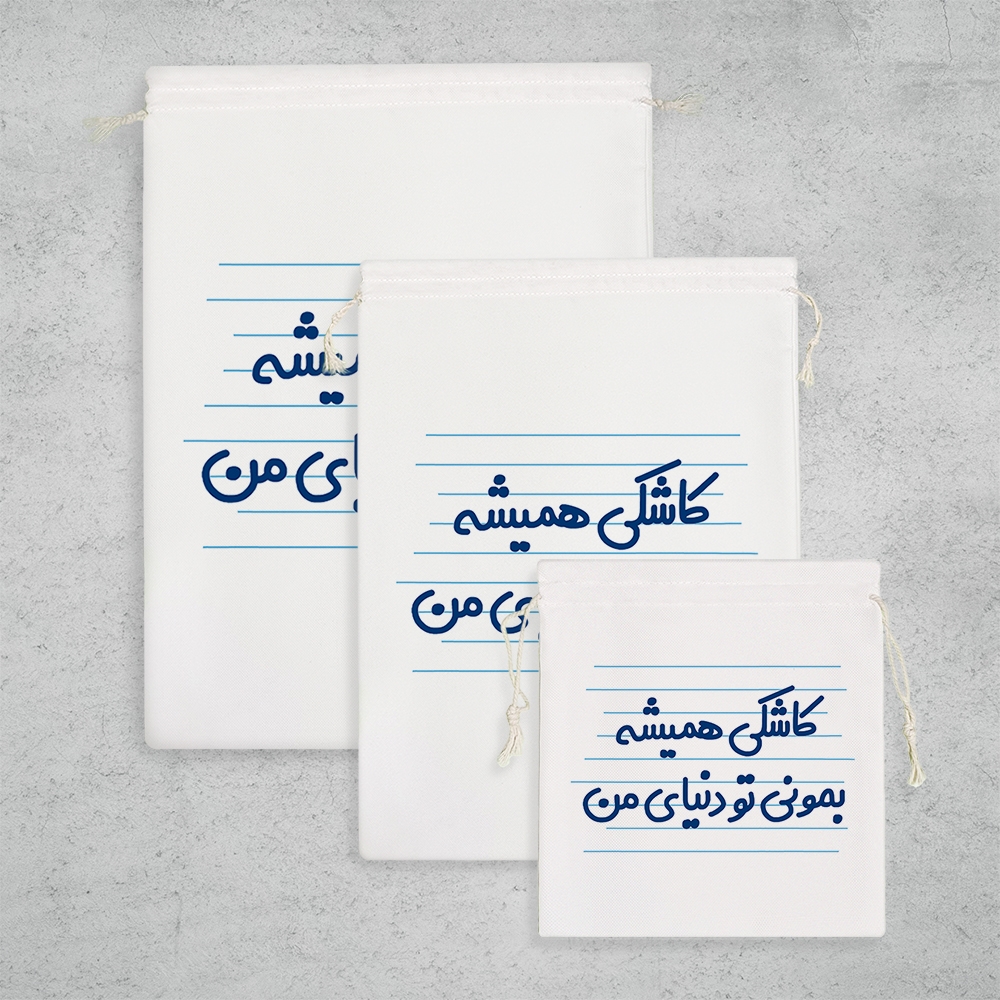 همیشه
ای من
کاشکی همیشه
ی من
کاشکی همیشه
بمونی تو دنیای من